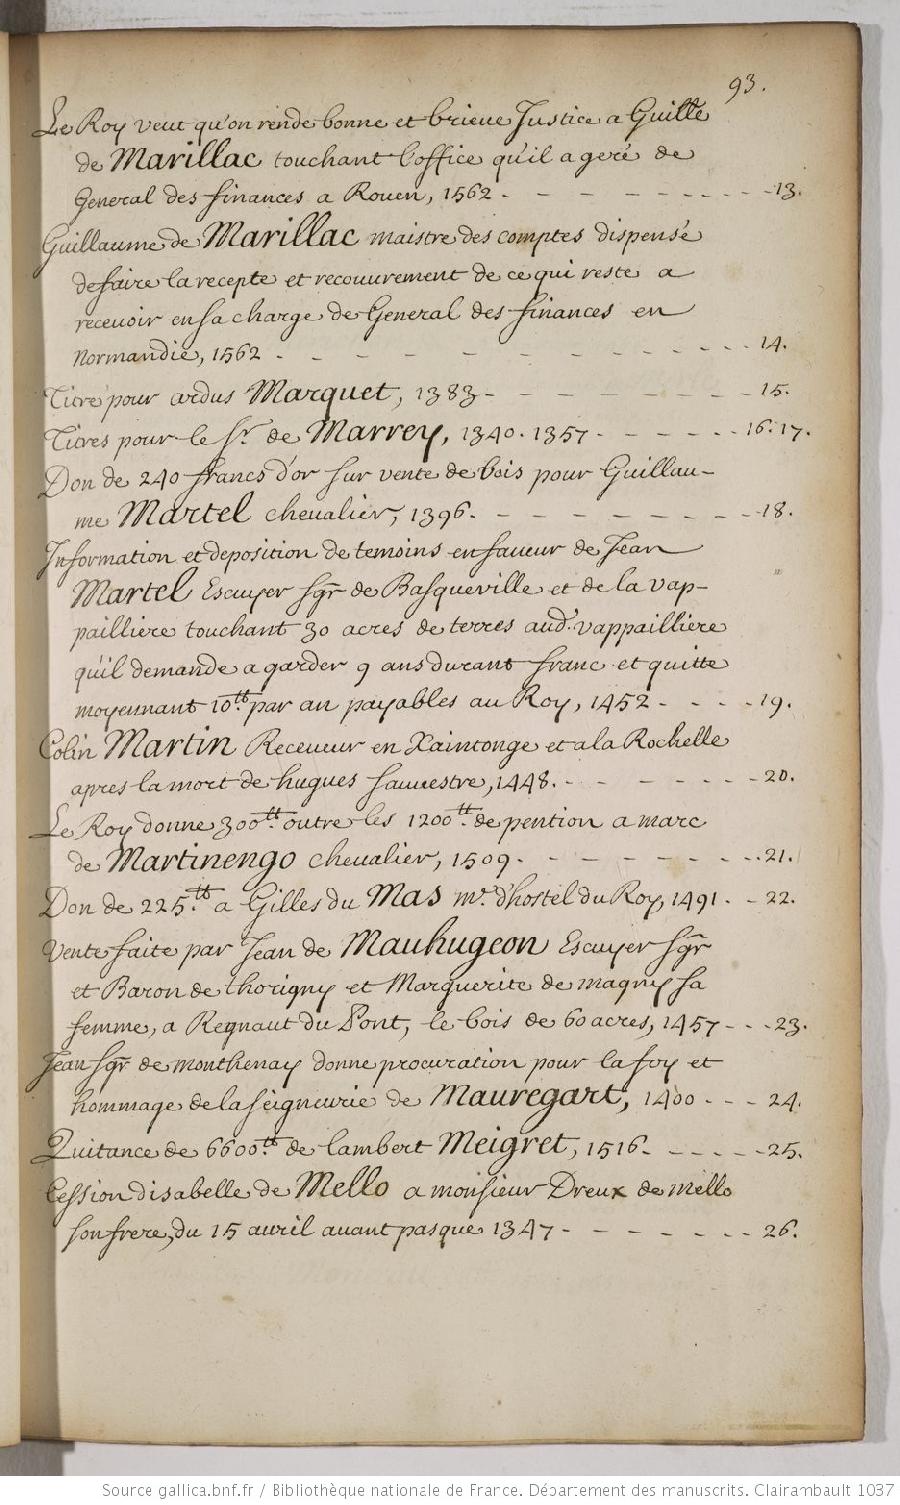 93.
Le Roy veut qu'on rende bonne et brieue Justice a Guille
de Marillac touchant l'office qu'il a geré de
General des finances a Rouen, 1562. - - - - - - - - - 13.
Guillaume de Marillac maistre des comptes dispensé
de faire la recepte et recouurement de ce qui reste a
receuoir en sa charge de General des finances en
Normandie, 1562 - - - - - - - - - - - - 14.
Titre pour ardus Marquet, 1383 - - - - - - - - 15.
Titres pour le Sr. de Marrey, 1340. 1357. - - - - - - 16. 17.
Don de 240 francs d'or sur vente de bois pour Guillau-
me Martel cheualier, 1396. - - - - - - - - - 18.
Information et deposition de temoins en faueur de Jean
Martel Escuyer sgr de Basqueville et de la vap-
pailliere touchant 30 acres de terres aud. vappailliere
qu'il demande a garder 9 ans durant franc et quitte
moyennant 10tt. par an payables au Roy, 1452 - - - - 19.
Colin Martin Receueur en Xaintonge et a la Rochelle
apres la mort de hugues sauuestre, 1448. - - - - - - - 20.
Le Roy donne 300tt. outre les 1200tt. de pention a marc
de Martinengo cheualier, 1509. - - - - - - - - 21.
Don de 225tt. a Gilles du Mas mre. d'hostel du Roy, 1491. - - 22.
Vente faite par Jean de Mauhugeon Escuyer sgr
et Baron de thorigny et Marguerite de magny sa
femme, a Regnaut du Pont, le bois de 60 acres, 1457 - - - 23.
Jean sgr de monthenay donne procuration pour la foy et
hommage de la seigneurie de Mauregart, 1400 - - - 24.
Quitance de 6600tt. de lambert Meigret, 1516. - - - - - 25.
Cession d'isabelle de Mello a monsieur Dreux de mello
son frere, du 15 auril auant pasque 1347 - - - - - - - 26.
Source gallica.bnf.fr / Bibliothèque nationale de France. Département des manuscrits. Clairambault 1037